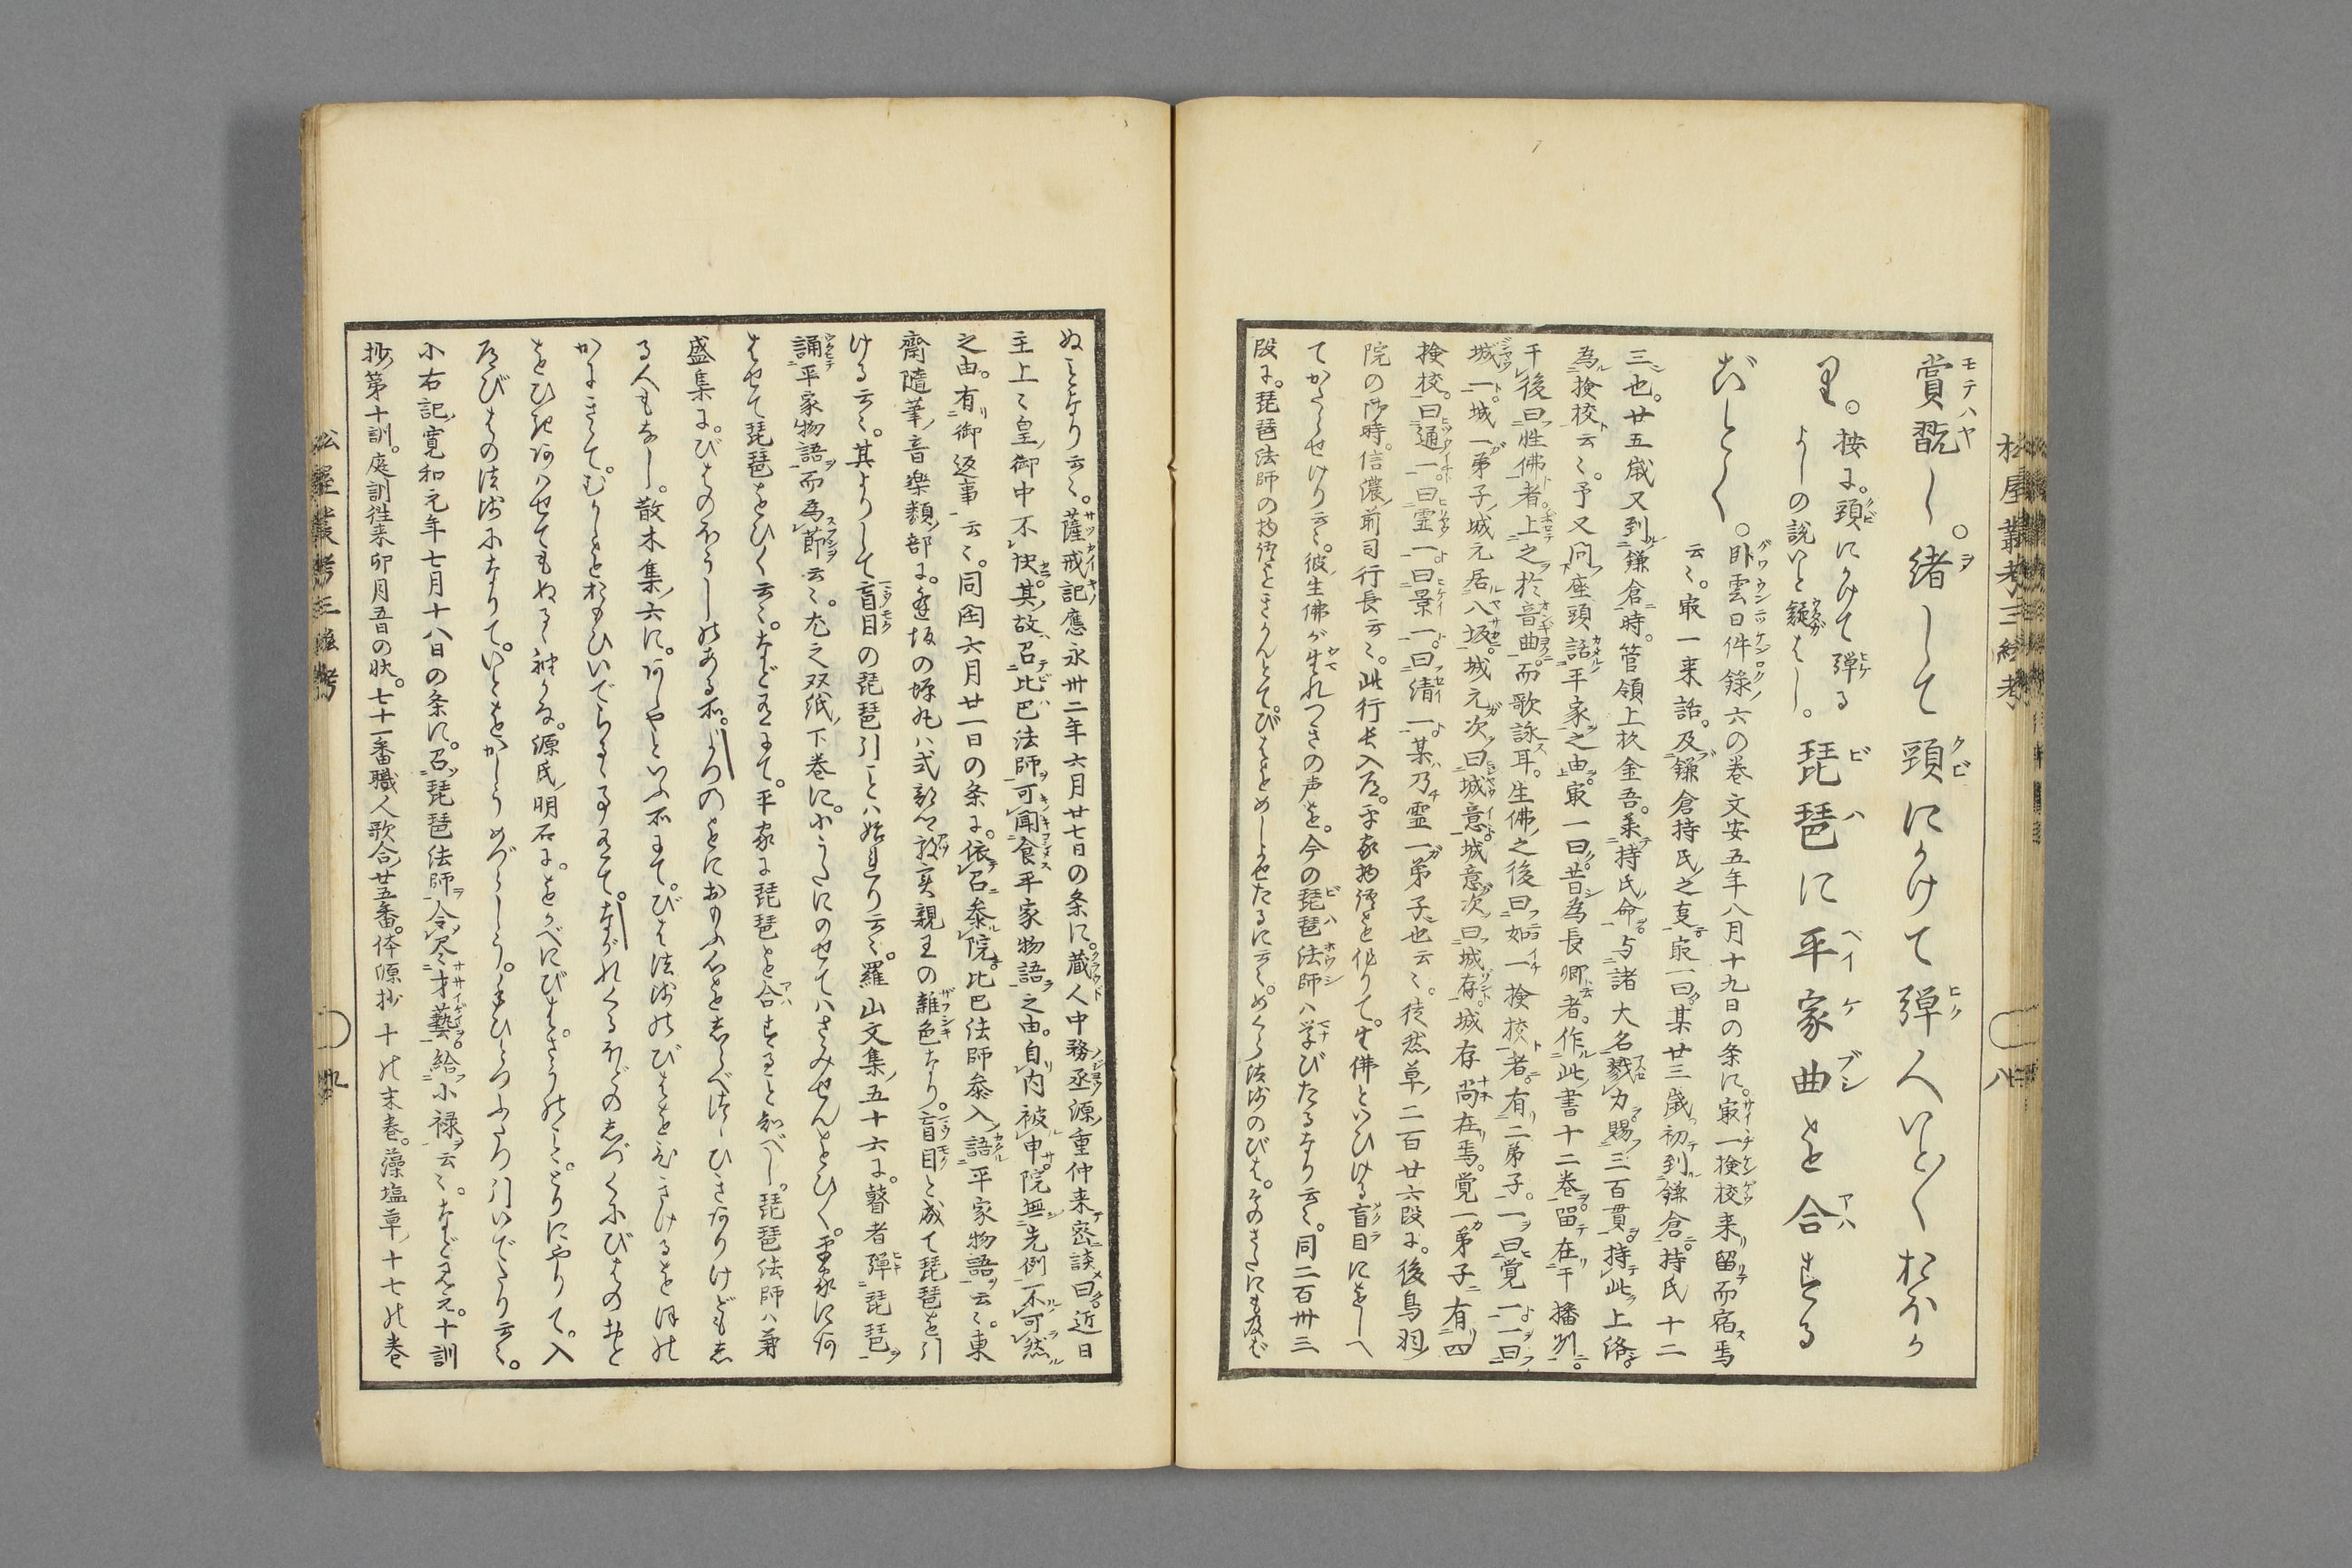 松屋叢考三絃考
八
賞翫し。緒して頸にかけて弾人いと〳〵おほか
里。按に。頸にかけて弾る
よしの説いと疑はし。琵琶に平家曲を合する
がごとく。臥雲日件録六の巻文安五年八月十九日の条に。最一検校来留而宿焉
云々。最一来話。及鎌倉持氏之事最一曰某廿三歳初到鎌倉持氏十二
三也。廿五歳又到鎌倉時。管領上杉金吾。承持氏命与諸大名戮力賜三百貫。持此上洛。
為検校云々。予又問座頭話平家之由。最一曰昔為長卿者。作此書十二巻留在于播州。
于後曰性佛者。上之於音曲。而歌詠耳。生佛之後曰如一検校者。有二弟子。一曰覚一一曰
城一。城一弟子城元居八坂。城元次曰城意。城意次曰城存。城存尚在焉。覚一弟子有四
検校。曰通一。曰霊一曰景一。曰清一某乃霊一弟子也云々。徒然草二百廿六段に。後鳥羽
院の御時。信濃前司行長云々。此行長入道。平家物語を作りて。生佛といひける盲目にをしへ
てかたらせけり云々。彼生佛が生れつきの声を。今の琵琶法師ハ学びたるなり云々。同二百卅三
段に。琵琶法師の物語をきかんとて。びはをめしよせたるに云々。めくら法師のびは。そのさたにも及ば
ぬことなり云々。薩戒記應永卅二年六月廿七日の条に。蔵人中務丞源重仲来密談曰近日
主上与上皇御中不快。其故召比巴法師可聞食平家物語之由。自内被申院無先例不可然
之由。有御返事云々。同圉六月廿一日の条に。依召参院。比巴法師参入語平家物語云々。東
齋随筆音楽類部に。逢坂の蝉丸ハ式部卿敦実親王の雑色なり。盲目と成て琵琶を引
ける云々。其よりして盲目の琵琶引ことハ始まり云々。羅山文集五十六に。瞽者弾琵琶
誦平家物語而為節云々。尤之双紙下巻に。小うたにのせてハさみせんをひく。平家にあ
はせて琵琶をひく云々。などあるにて。平家に琵琶を合すると知べし。琵琶法師ハ兼
盛集に。びはのほうしのある所。よつのをにおもふ心をしらべつゝひきありけどもし
る人もなし。散木集六に。あしやといふ所にて。びは法師のびはをひきけるをほの
かにきゝて。むかしをおもひいでらるゝ事有て。ながれくるほどのしづくにびはのをと
をひきあハせてもぬるゝ袖かな。源氏明石に。をかべにびは。さうのこと。とりにやりて。入
道びはの法師になりて。いとをかしうめづらしう。手ひとつふたつ引いでたり云々。
小右記寛和元年七月十八日の条に。召琵琶法師令尽才藝給小禄云々。など見え。十訓
抄第十訓。庭訓往来卯月五日の状。七十一番職人歌合廿五番。体源抄十の末巻。藻塩草十七の巻
松屋叢考三絃考
九